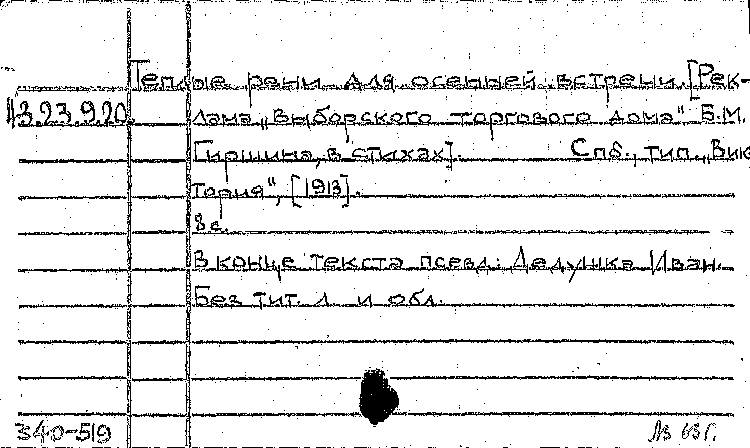 Теплые речи для осенней встречи. [Рек-
43.23.9.20.
лама „Выборского торгового дома" Б.М.
Гиршина, в стихах]. Спб., тип. „Вик
тория", [1913].
8 с.
В конце текста псевд.: Дедушка Иван.
Без тит. л. и обл.
340-519
Лз 63 г.